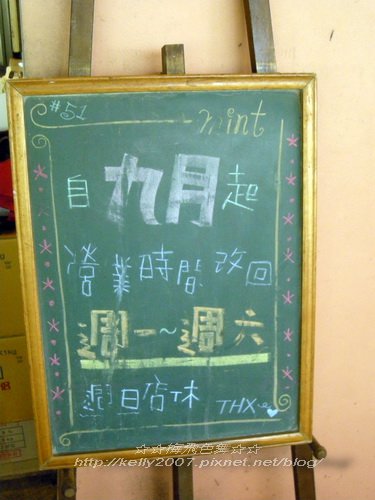 #51 mint
自九月起
營業時間改回
週一~週六
週日店休 THX
☆☆海飛色舞☆☆
http://kelly2007.pixnet.net/blog/